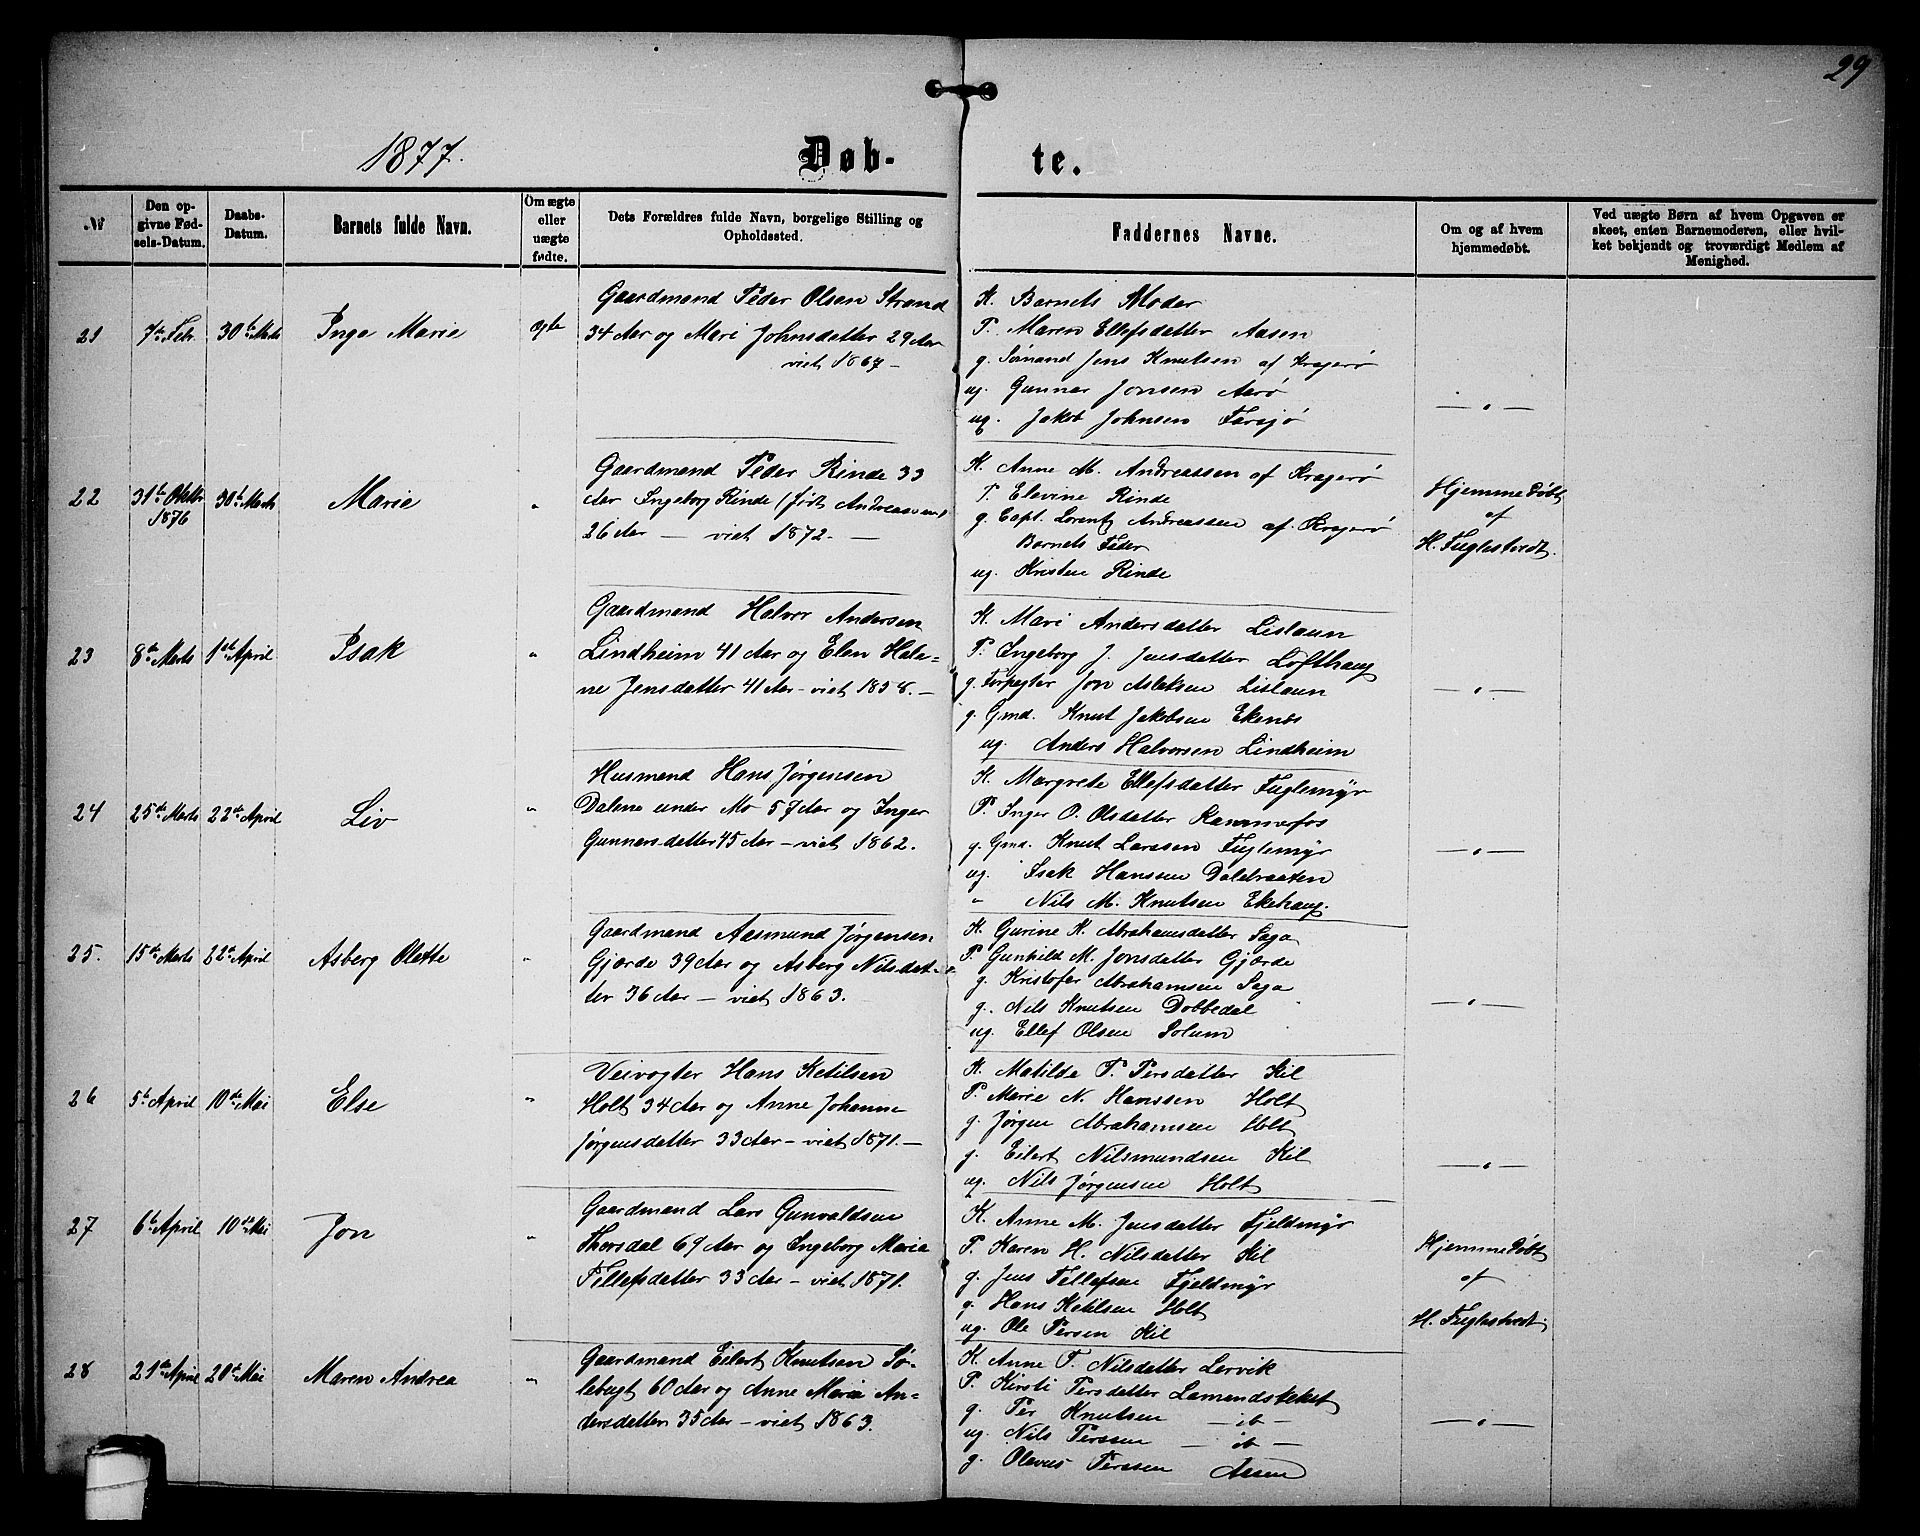 29
1877.
Døb-te.
No
Den op-
givne Fød-
sels-Datum.
Daabs-
Datum.
Barnets fulde Navn.
Om ægte
eller
uægte
fødte.
Dets Forældres fulde Navn, borgelige Stilling og
Opholdssted.
Faddernes Navne.
Om og af hvem
hjemmedøbt.
Ved uægte Børn af hvem Opgaven er
skeet, enten Barnemoderen, eller hvil-
ket bekjendt og troværdigt Medlem af
Menighed.
21
7de Febr.
30te Marts
Inge Marie
ægte
Gaardmand Peder Olsen Strand
34 Aar og Mari Johnsdatter 29 Aar
viet 1867 —
K. Barnets Moder
P. Maren Ellefsdatter Aasen
g. Sømand Jens Knutsen af Kragerø
ug. Gunnar Jonsen Aarø
ug. Jakob Johnsen Farsjø
— „ —
22
31te Oktbr
1876
30te Marts
Marie
„
Gaardmand Peder Rinde 33
Aar Ingeborg Rinde (født Andreassen)
26 Aar — viet 1872. —
K. Anne M. Andreassen af Kragerø
P. Elevine Rinde
g. Capt. Lorentz Andreassen af Kragerø
Barnets Fader
ug. Kristen Rinde
Hjemmedøbt
af
H. Fuglestvedt.
23
8de Marts
1ste April
Isak
„
Gaardmand Halvor Andersen
Lindheim 41 Aar og Elen Hele-
ne Jensdatter 41 Aar — viet 1858. —
K. Mari Andersdatter Lislaun
P. Ingeborg J. Jensdatter Lofthaug
g. Forpagter Jon Aslaksen Lislaun
g. Gmd. Knut Jakobsen Ekenæs
ug. Anders Halvorsen Lindheim
— „ —
24
25de Marts
22de April
Liv
„
Husmand Hans Jørgensen
Dalene under Mo 57 Aar og Inger
Gunnarsdatter 45 Aar — viet 1862.
K. Margrete Ellefsdatter Fuglemyr
P. Inger O. Olsdatter Rammerfos
g. Gmd. Knut Larssen Fuglemyr
ug. Isak Hanssen Dalebraaten
„ Nils M. Knutsen Ekehaug.
— „ —
25.
15de Marts
22de April
Asberg Olette
„
Gaardmand Aasmund Jørgensen
Gjærde 39 Aar og Asberg Nilsdat-
ter 36 Aar — viet 1863.
K. Gurine K. Abrahamsdatter Saga
P. Gunhild M. Jonsdatter Gjærde
g. Kristofer Abrahamsen Saga
g. Nils Knutsen Dobbedal
ug. Ellef Olsen Solum
— „ —
26
5te April
10de Mai
Else
„
Veivogter Hans Ketilsen
Holt 34 Aar og Anne Johanne
Jørgensdatter 33 Aar — viet 1871. —
K. Matilde T. Persdatter Kil
P. Marie N. Hanssen Holt
g. Jørgen Abrahamsen Holt
g. Eilert Nilsmundsen Kil
ug. Nils Jørgensen Holt
— „ —
27
6te April
10de Mai
Jon
„
Gaardmand Lars Gunvaldsen
Thorsdal 69 Aar og Ingeborg Maria
Tellefsdatter 33 Aar — viet 1871.
K. Anne M. Jensdatter Fjeldmyr
P. Karen H. Nilsdatter Kil
g. Jens Tellefsen Fjeldmyr
g. Hans Ketilsen Holt
ug. Ole Persen Kil
Hjemmedøbt
af
H. Fuglestvedt.
28
21de April
20de Mai
Maren Andrea
„
Gaardmand Eilert Knutsen Sø-
lebugt 60 Aar og Anne Maria An-
dersdatter 35 Aar — viet 1863.
K. Anne T. Nilsdatter Lervik
P. Kirsti Persdatter
g. Per Knutsen — ib —
ug. Nils Perssen — ib —
g. Olavus Perssen Aasen
— „ —